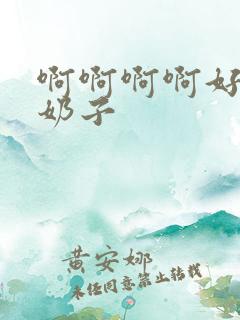 啊啊啊啊好
奶子
黄安娜
未经同意禁止转载